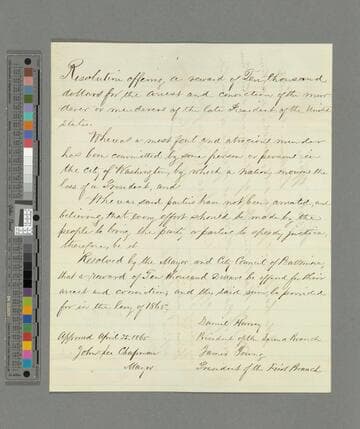 Resolution offering a reward of Ten thousand
dollars for the arrest and conviction of the mur
derer or murderers of the late President of the United
States.
Whereas a most foul and atrocious murder
has been committed by some person or persons in
the City of Washington by which a Nation mourns the
loss of a President, and
Whereas said parties have not been arrested, and
believing that every effort should be made by the
people to bring the party or parties to speedy justice,
therefore, be it
Resolved by the Mayor and City Council of Baltimore,
that a reward of Ten thousand Dollars be offered for their
arrest and conviction, and the said sum be provided
for in the levy of 1865.
Daniel Harvey
President of the Second Branch
Approved April 22 1865
John Lee Chapman
James Young
Mayor
President of the First Branch